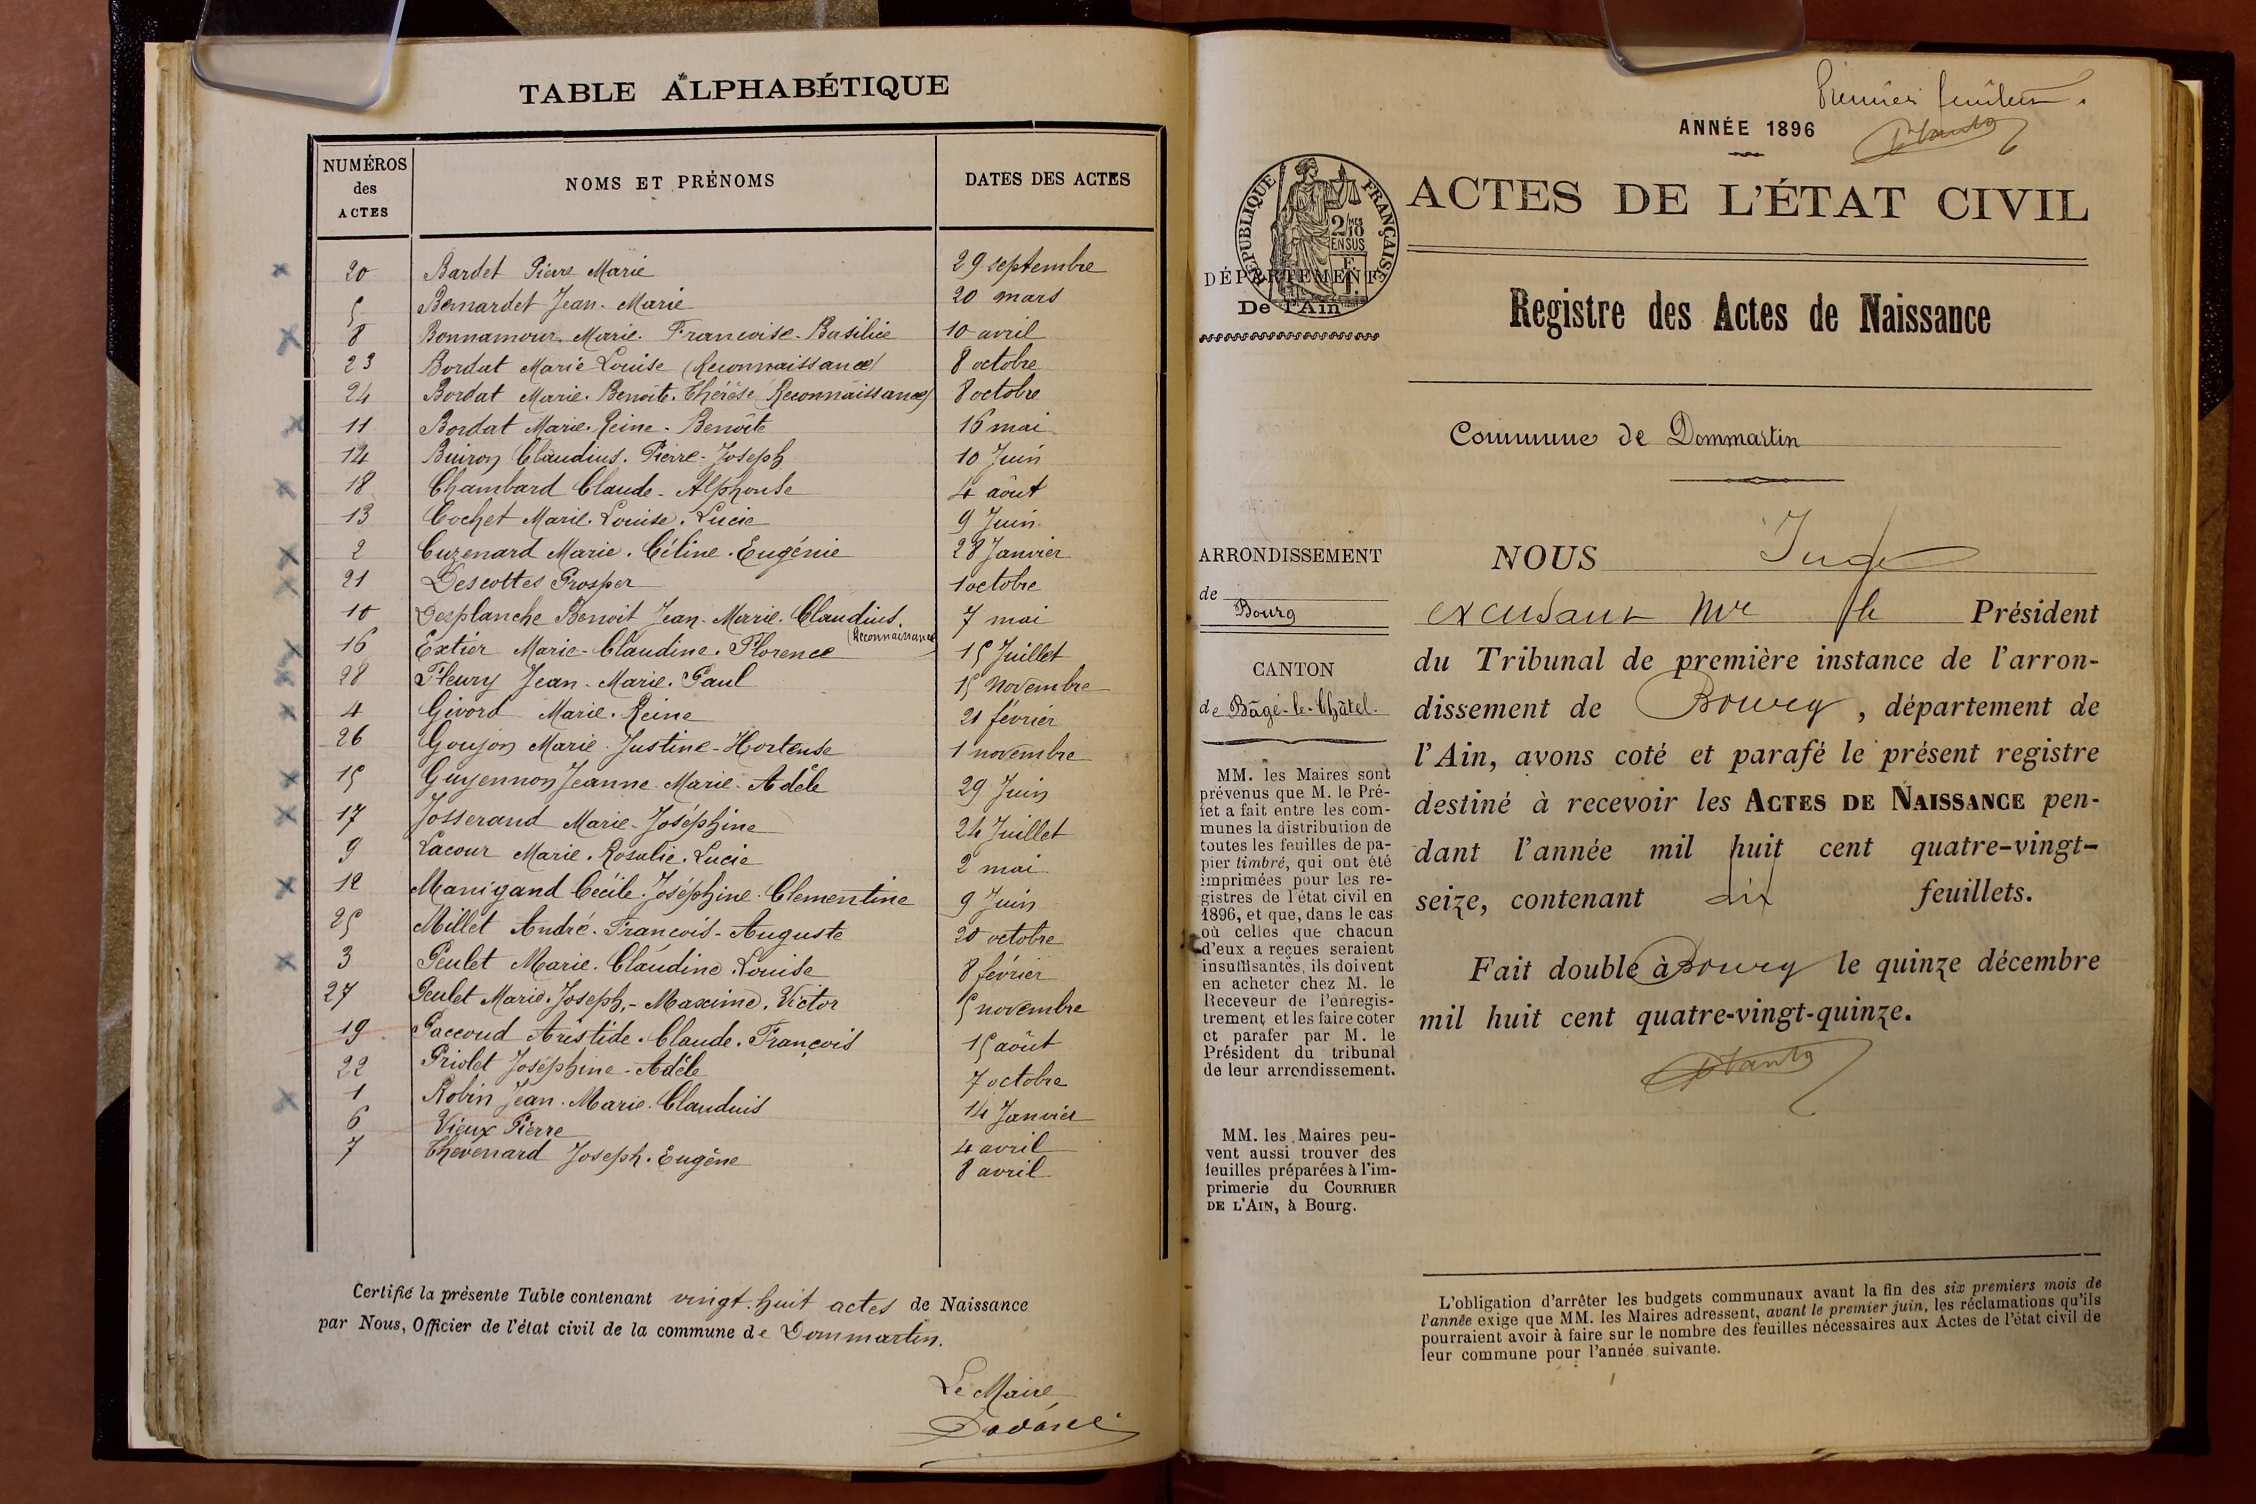 TABLE ALPHABÉTIQUE
NUMÉROS des ACTES NOMS ET PRÉNOMS DATES DES ACTES
20 Bardet Pierre Marie 29 septembre
5 Bernardet Jean-Marie 20 mars
8 Bonnamour Marie-Françoise-Basilice 10 avril
23 Bordat Marie Louise (Reconnaissance) 8 octobre
24 Bordat Marie-Benoîte-Thérèse (Reconnaissance) 8 octobre
11 Bordat Marie-Reine-Benoîte 16 mai
14 Buiron Claudius-Pierre-Joseph 10 Juin
18 Chambard Claude-Alphonse 4 août
13 Cochet Marie-Louise-Lucie 9 Juin
2 Cuzenard Marie-Céline-Eugénie 28 Janvier
21 Descottes Prosper 1 octobre
10 Desplanche Benoit Jean-Marie-Claudius 7 mai
16 Extier Marie-Claudine-Florence (Reconnaissance) 15 Juillet
28 Fleury Jean-Marie-Paul 15 Novembre
4 Givord Marie-Reine 21 février
26 Goujon Marie-Justine-Hortense 1 novembre
15 Guyennon Jeanne-Marie-Adèle 29 Juin
17 Josserand Marie-Joséphine 24 Juillet
9 Lacour Marie-Rosalie-Lucie 2 mai
12 Manigand Cécile-Joséphine-Clementine 9 Juin
25 Millet André-François-Auguste 20 octobre
3 Peulet Marie-Claudine-Louise 8 février
27 Peulet Marie-Joseph-Maxime-Victor 5 novembre
19 Paccoud Aristide-Claude-François 15 août
22 Priolet Joséphine-Adèle 7 octobre
1 Robin Jean-Marie-Claudius 14 Janvier
6 Vieux Pierre 4 avril
7 Thévenard Joseph-Eugène 8 avril
Certifié la présente Table contenant vingt-huit actes de Naissance
par Nous, Officier de l'état civil de la commune de Dommartin.
Le Maire
Premier feuillet.
ANNÉE 1896
RÉPUBLIQUE FRANÇAISE
2/10 MES
EN SUS
ACTES DE L'ÉTAT CIVIL
DÉPARTEMENT
De l'Ain
Registre des Actes de Naissance
Commune de Dommartin
ARRONDISSEMENT
de Bourg
CANTON
de Bâgé-le-Châtel.
MM. les Maires sont
prévenus que M. le Pré-
fet a fait entre les com-
munes la distribution de
toutes les feuilles de pa-
pier timbré, qui ont été
imprimées pour les re-
gistres de l'état civil en
1896, et que, dans le cas
où celles que chacun
d'eux a reçues seraient
insuffisantes, ils doivent
en acheter chez M. le
Receveur de l'enregis-
trement et les faire coter
et parafer par M. le
Président du tribunal
de leur arrondissement.
MM. les Maires peu-
vent aussi trouver des
feuilles préparées à l'im-
primerie du COURRIER
DE L'AIN, à Bourg.
NOUS Juge
excusant Mr le Président
du Tribunal de première instance de l'arron-
dissement de Bourg, département de
l'Ain, avons coté et parafé le présent registre
destiné à recevoir les ACTES DE NAISSANCE pen-
dant l'année mil huit cent quatre-vingt-
seize, contenant dix feuillets.
Fait double à Bourg le quinze décembre
mil huit cent quatre-vingt-quinze.
L'obligation d'arrêter les budgets communaux avant la fin des six premiers mois de
l'année exige que MM. les Maires adressent, avant le premier juin, les réclamations qu'ils
pourraient avoir à faire sur le nombre des feuilles nécessaires aux Actes de l'état civil de
leur commune pour l'année suivante.